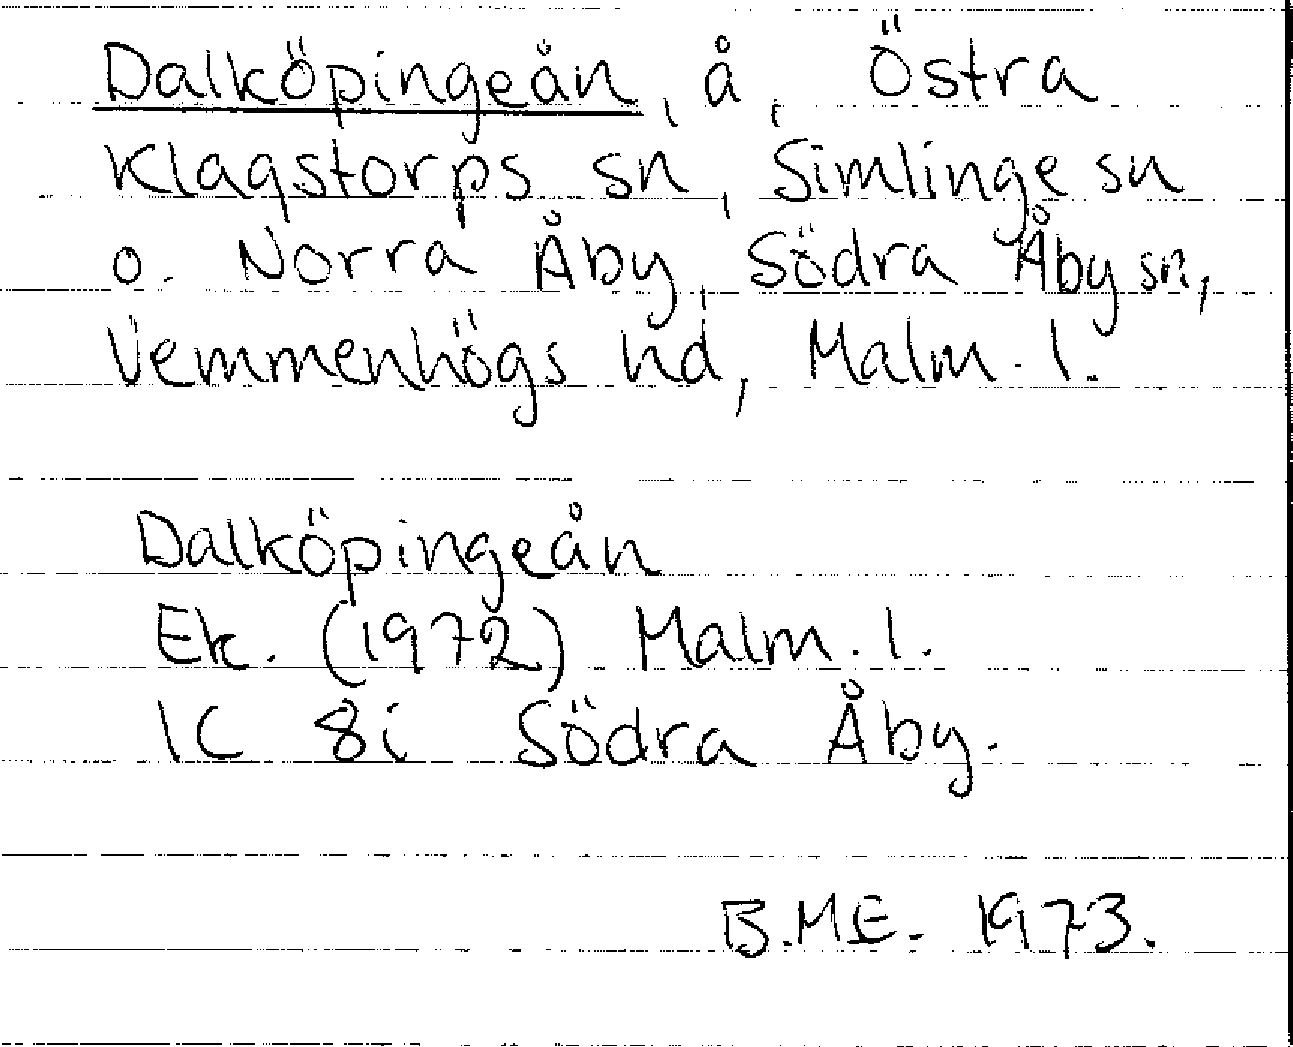 Dalköpingeån, å, Östra
Klagstorps sn, Simlinge sn
o. Norra Åby, Södra Åby sn,
Vemmenhögs hd, Malm. l.
Dalköpingeån
Ek. (1972) Malm. l.
1C 8i Södra Åby.
B.ME. 1973.